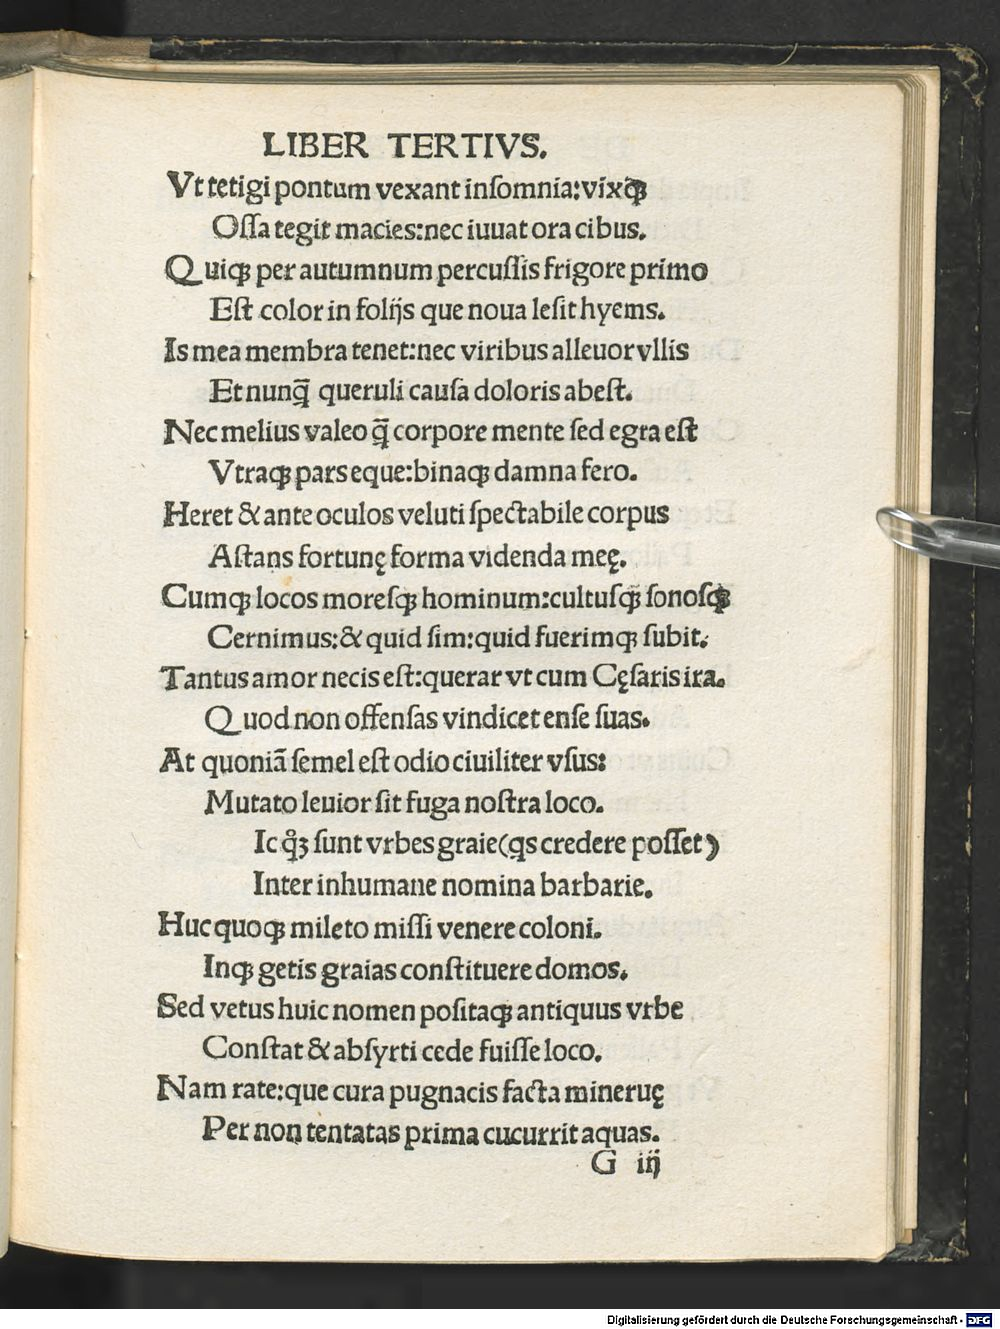 LIBER TERTIVS.
Vt tetigi pontum vexant inſomnia:vixqꝫ
Oſſa tegit macies:nec iuuat ora cibus.
Quiqꝫ per autumnum percuſſis frigore primo
Eſt color in folijs que noua leſit hyems.
Is mea membra tenet:nec viribus alleuor vllis
Et nunq̃ queruli cauſa doloris abeſt.
Nec melius valeo q̃ corpore mente ſed egra eſt
Vtraqꝫ pars eque:binaqꝫ damna fero.
Heret & ante oculos veluti ſpectabile corpus
Aſtans fortunę forma videnda meę.
Cumqꝫ locos moreſqꝫ hominum:cultuſqꝫ ſonoſqꝫ
Cernimus:& quid ſim:quid fuerimqꝫ ſubit.
Tantus amor necis eſt:querar vt cum Cęſaris ira.
Quod non offenſas vindicet enſe ſuas.
At quoniã ſemel eſt odio ciuiliter vſus:
Mutato leuior ſit fuga noſtra loco.
Ic qͦꝫ ſunt vrbes graie(qs credere poſſet)
Inter inhumane nomina barbarie.
Huc quoqꝫ mileto miſſi venere coloni.
Inqꝫ getis graias conſtituere domos.
Sed vetus huic nomen poſitaqꝫ antiquus vrbe
Conſtat & abſyrti cede fuiſſe loco.
Nam rate:que cura pugnacis facta mineruę
Per non tentatas prima cucurrit aquas.
G iij
Digitalisierung gefördert durch die Deutsche Forschungsgemeinschaft - DFG